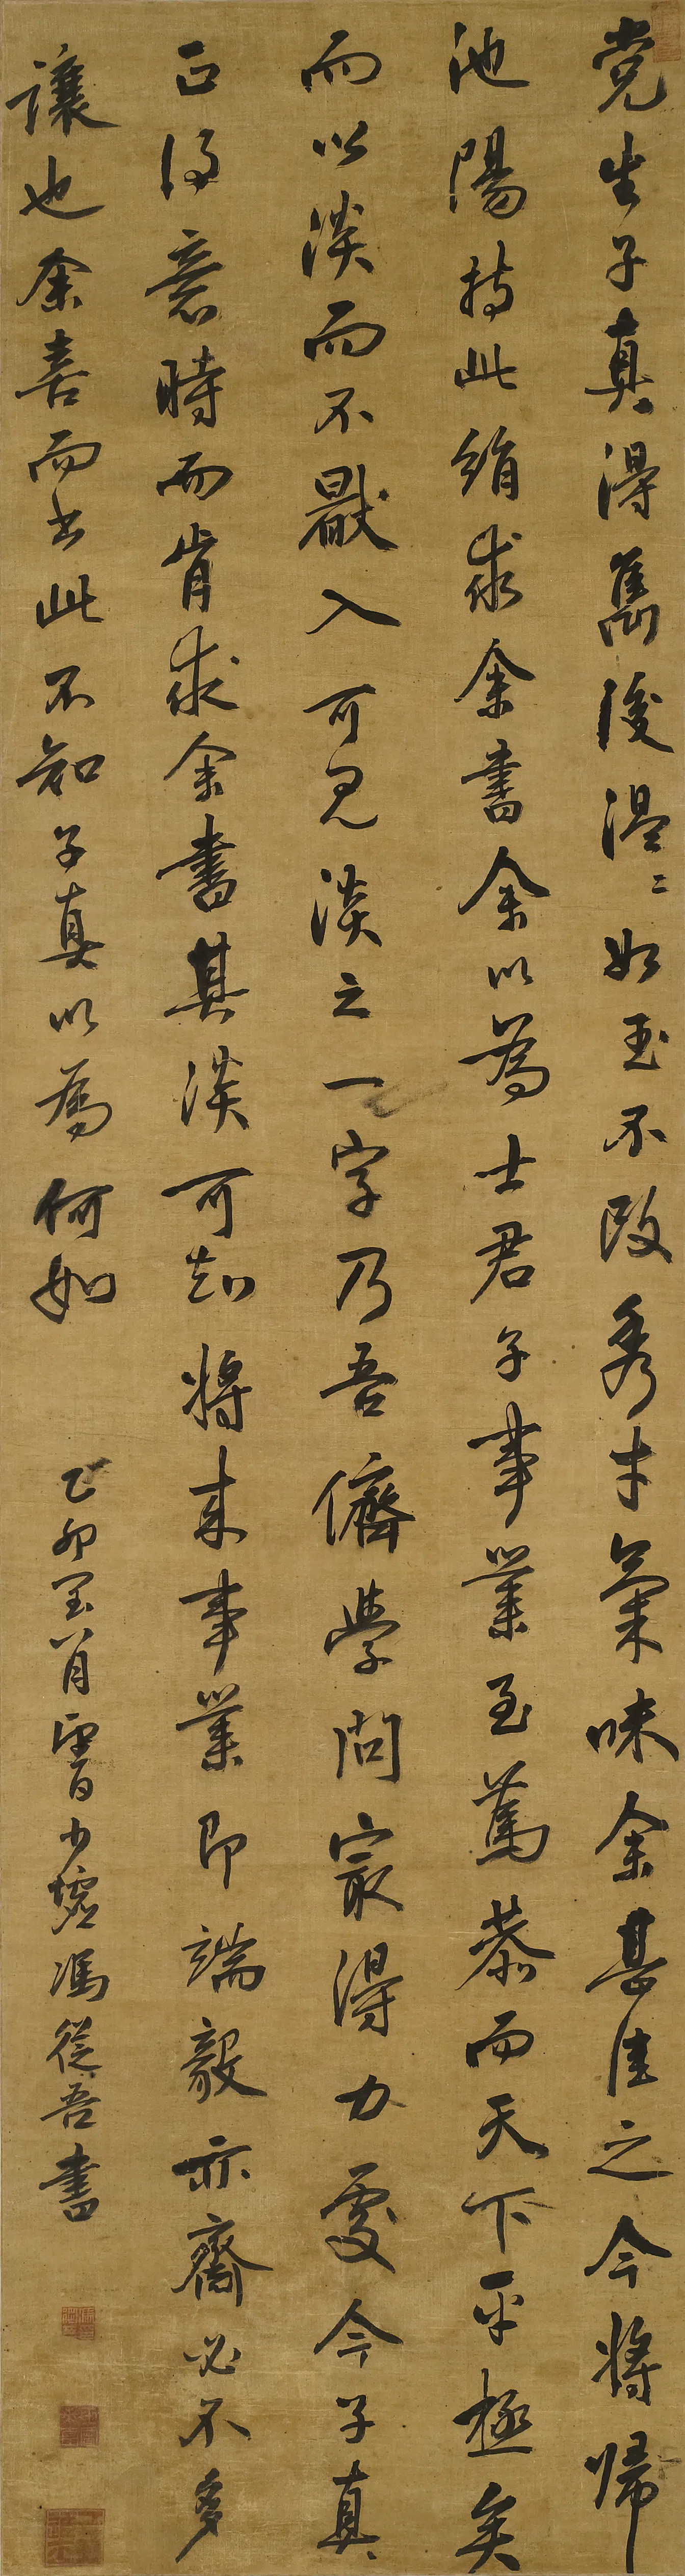 党生子真得雋後溫〻如玉不改秀才氣味余甚佳之今將歸
池陽持此絹求余書余以為士君子事業至篤恭而天下平極矣
而以淡而不厭入可見淡之一字乃吾儕學問最得力處今子真
正得意時而肯求余書其淡可知將來事業即端毅亦齋必不多
讓也余喜而書此不知子真以為何如
乙卯至月晉日少墟馮從吾書